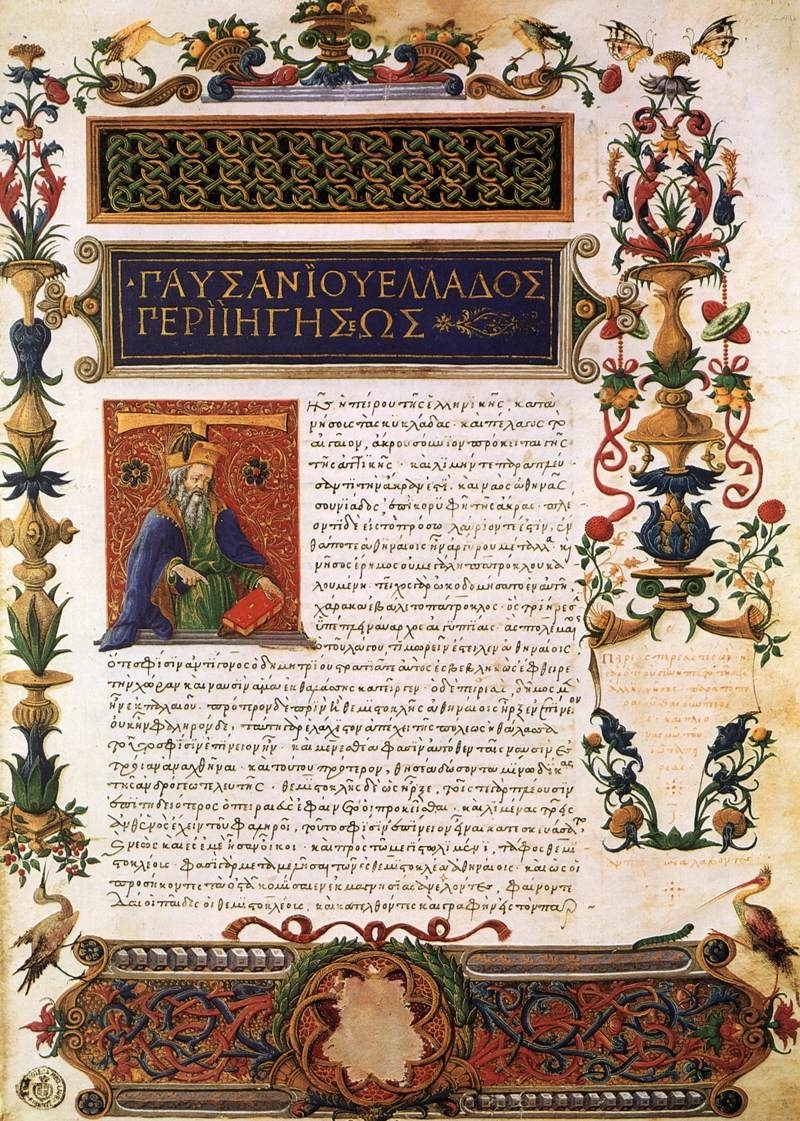 ·ΠΑΥΣΑΝΪΟΥ ΕΛΛΑΔΟΣ
ΠΕΡΙΗΓΗΣΕΩΣ
Τῆς ἠπείρου τῆς ἑλληνικῆς, κατὰ
νήσους τὰς κυκλάδας· καὶ πέλαγος τὸ
αἰγαῖον, ἄκρον σούνιον πρόκειται γῆς
τῆς ἀττικῆς· καὶ λιμήν τε παραπλεύ
σαντι τὴν ἄκραν ἐστὶ, καὶ ναὸς ἀθηνᾶς
σουνιάδος, ἐπὶ κορυφῇ τῆς ἄκρας· πλέ
οντι δὲ εἰς τὸ πρόσω λαύριόν τέ ἐστιν, ἔν
θά ποτε ἀθηναίοις ἦν ἀργύρου μέταλλα· καὶ
νῆσος ἔρημος οὐ μεγάλη πατρόκλου κα
λουμένη· τεῖχος γὰρ ὠκοδομήσατο ἐν αὐτῇ,
χάρακα ἐβάλετο πάτροκλος· ὃς τριήρεσιν
ὑπέπλει ναύαρχος αἰγυπτίαις· ἃς πτολεμαῖος
ὁ τοῦ λάγου, τιμωρεῖν ἔστειλεν ἀθηναίοις
ὅτε σφίσιν ἀντίγονος ὁ δημητρίου στρατιᾷ τε αὐτὸς ἐσβεβληκὼς ἔφθειρε
τὴν χώραν καὶ ναυσὶν ἅμα ἐκ θαλάσσης κατεῖργεν· ὁ δὲ πειραιεὺς, δῆμος μὲν
ἦν ἐκ παλαιοῦ· πρότερον δὲ πρὶν ἢ θεμιστοκλῆς ἀθηναίοις ἦρξεν ἐπίνειον
οὐκ ἦν· φαληρὸν δὲ, ταύτῃ γὰρ ἐλάχιστον ἀπέχει τῆς πόλεως ἡ θάλασσα
τοῦτό σφισιν ἐπίνειον ἦν· καὶ μενεσθέα φασὶν αὐτόθεν ταῖς ναυσὶν ἐς
τροίαν ἀναχθῆναι· καὶ τούτου πρότερον, θησέα δώσοντα μίνῳ δίκας
τῆς ἀνδρόγεω τελευτῆς· θεμιστοκλῆς δὲ ὡς ἦρξε, τοῖς τε γὰρ πλέουσιν
ἐπιτηδειότερος ὁ πειραιεὺς ἐφαίνετό οἱ προκεῖσθαι· καὶ λιμένας τρεῖς
ἀνθ' ἑνὸς ἔχειν τοῦ φαληροῖ, τοῦτό σφισιν ἐπίνειον εἶναι κατεσκευάσατο,
νεὼς καὶ ἐς ἐμὲ ἦσαν οἶκοι· καὶ πρὸς τῷ μεγίστῳ λιμένι, τάφος θεμι
στοκλέους· φασὶ γὰρ μεταμελῆσαι τῶν ἐς θεμιστοκλέα ἀθηναίοις· καὶ ὡς οἱ
προσήκοντες τὰ ὀστᾶ κομίσαιεν ἐκ μαγνησίας ἀνελόντες, φαίνονται
δὲ οἱ παῖδες οἱ θεμιστοκλέους, καὶ κατελθόντες καὶ γραφὴν ἐς τὸν παρ